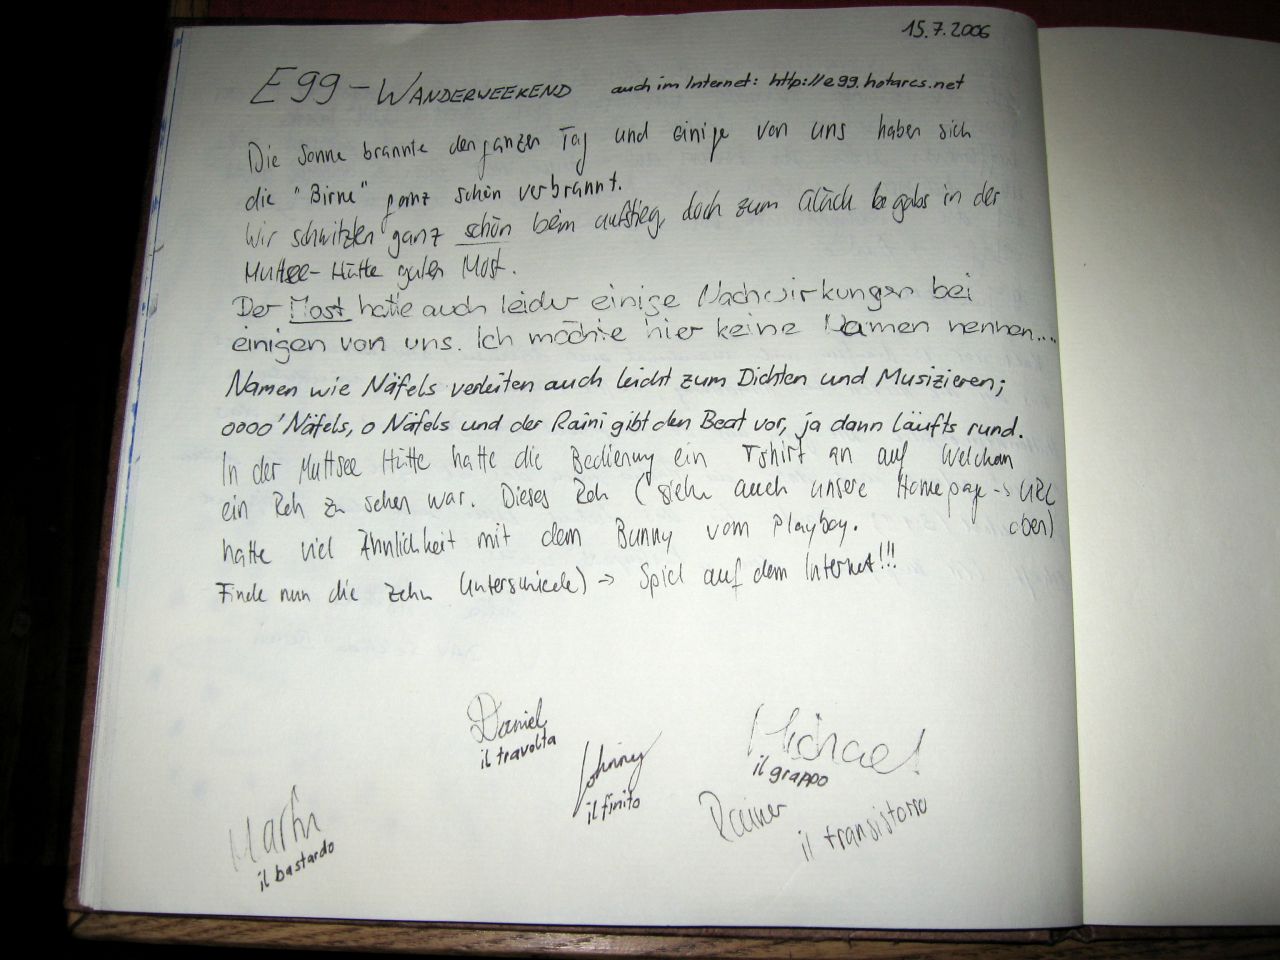 15.7.2006
Egg - WANDERWEEKEND auch im Internet: http://egg.hotarcs.net
Die Sonne brannte den ganzen Tag und einige von uns haben sich
die "Birne" ganz schön verbrannt.
Wir schwitzten ganz schön beim aufstieg, doch zum Glück gabs in der
Muttsee-Hütte guten Most.
Der Most hatte auch leider einige Nachwirkungen bei
einigen von uns. Ich möchte hier keine Namen nennen...
Namen wie Näfels verleiten auch leicht zum Dichten und Musizieren;
oooo'Näfels, o Näfels und der Raini gibt den Beat vor, ja dann läufts rund.
In der Muttsee Hütte hatte die Bedienung ein Tshirt an auf Welchem
ein Reh zu sehen war. Dieses Reh (siehe auch unsere Homepage -> URL
oben)
hatte viel Ähnlichkeit mit dem Bunny vom Playboy.
Finde nun die zehn Unterschiede) -> Spiel auf dem Internet!!!
Daniel
il travolta
Johnny
il finito
Michael
il grappo
Rainer
il transistorro
Martin
il bastardo